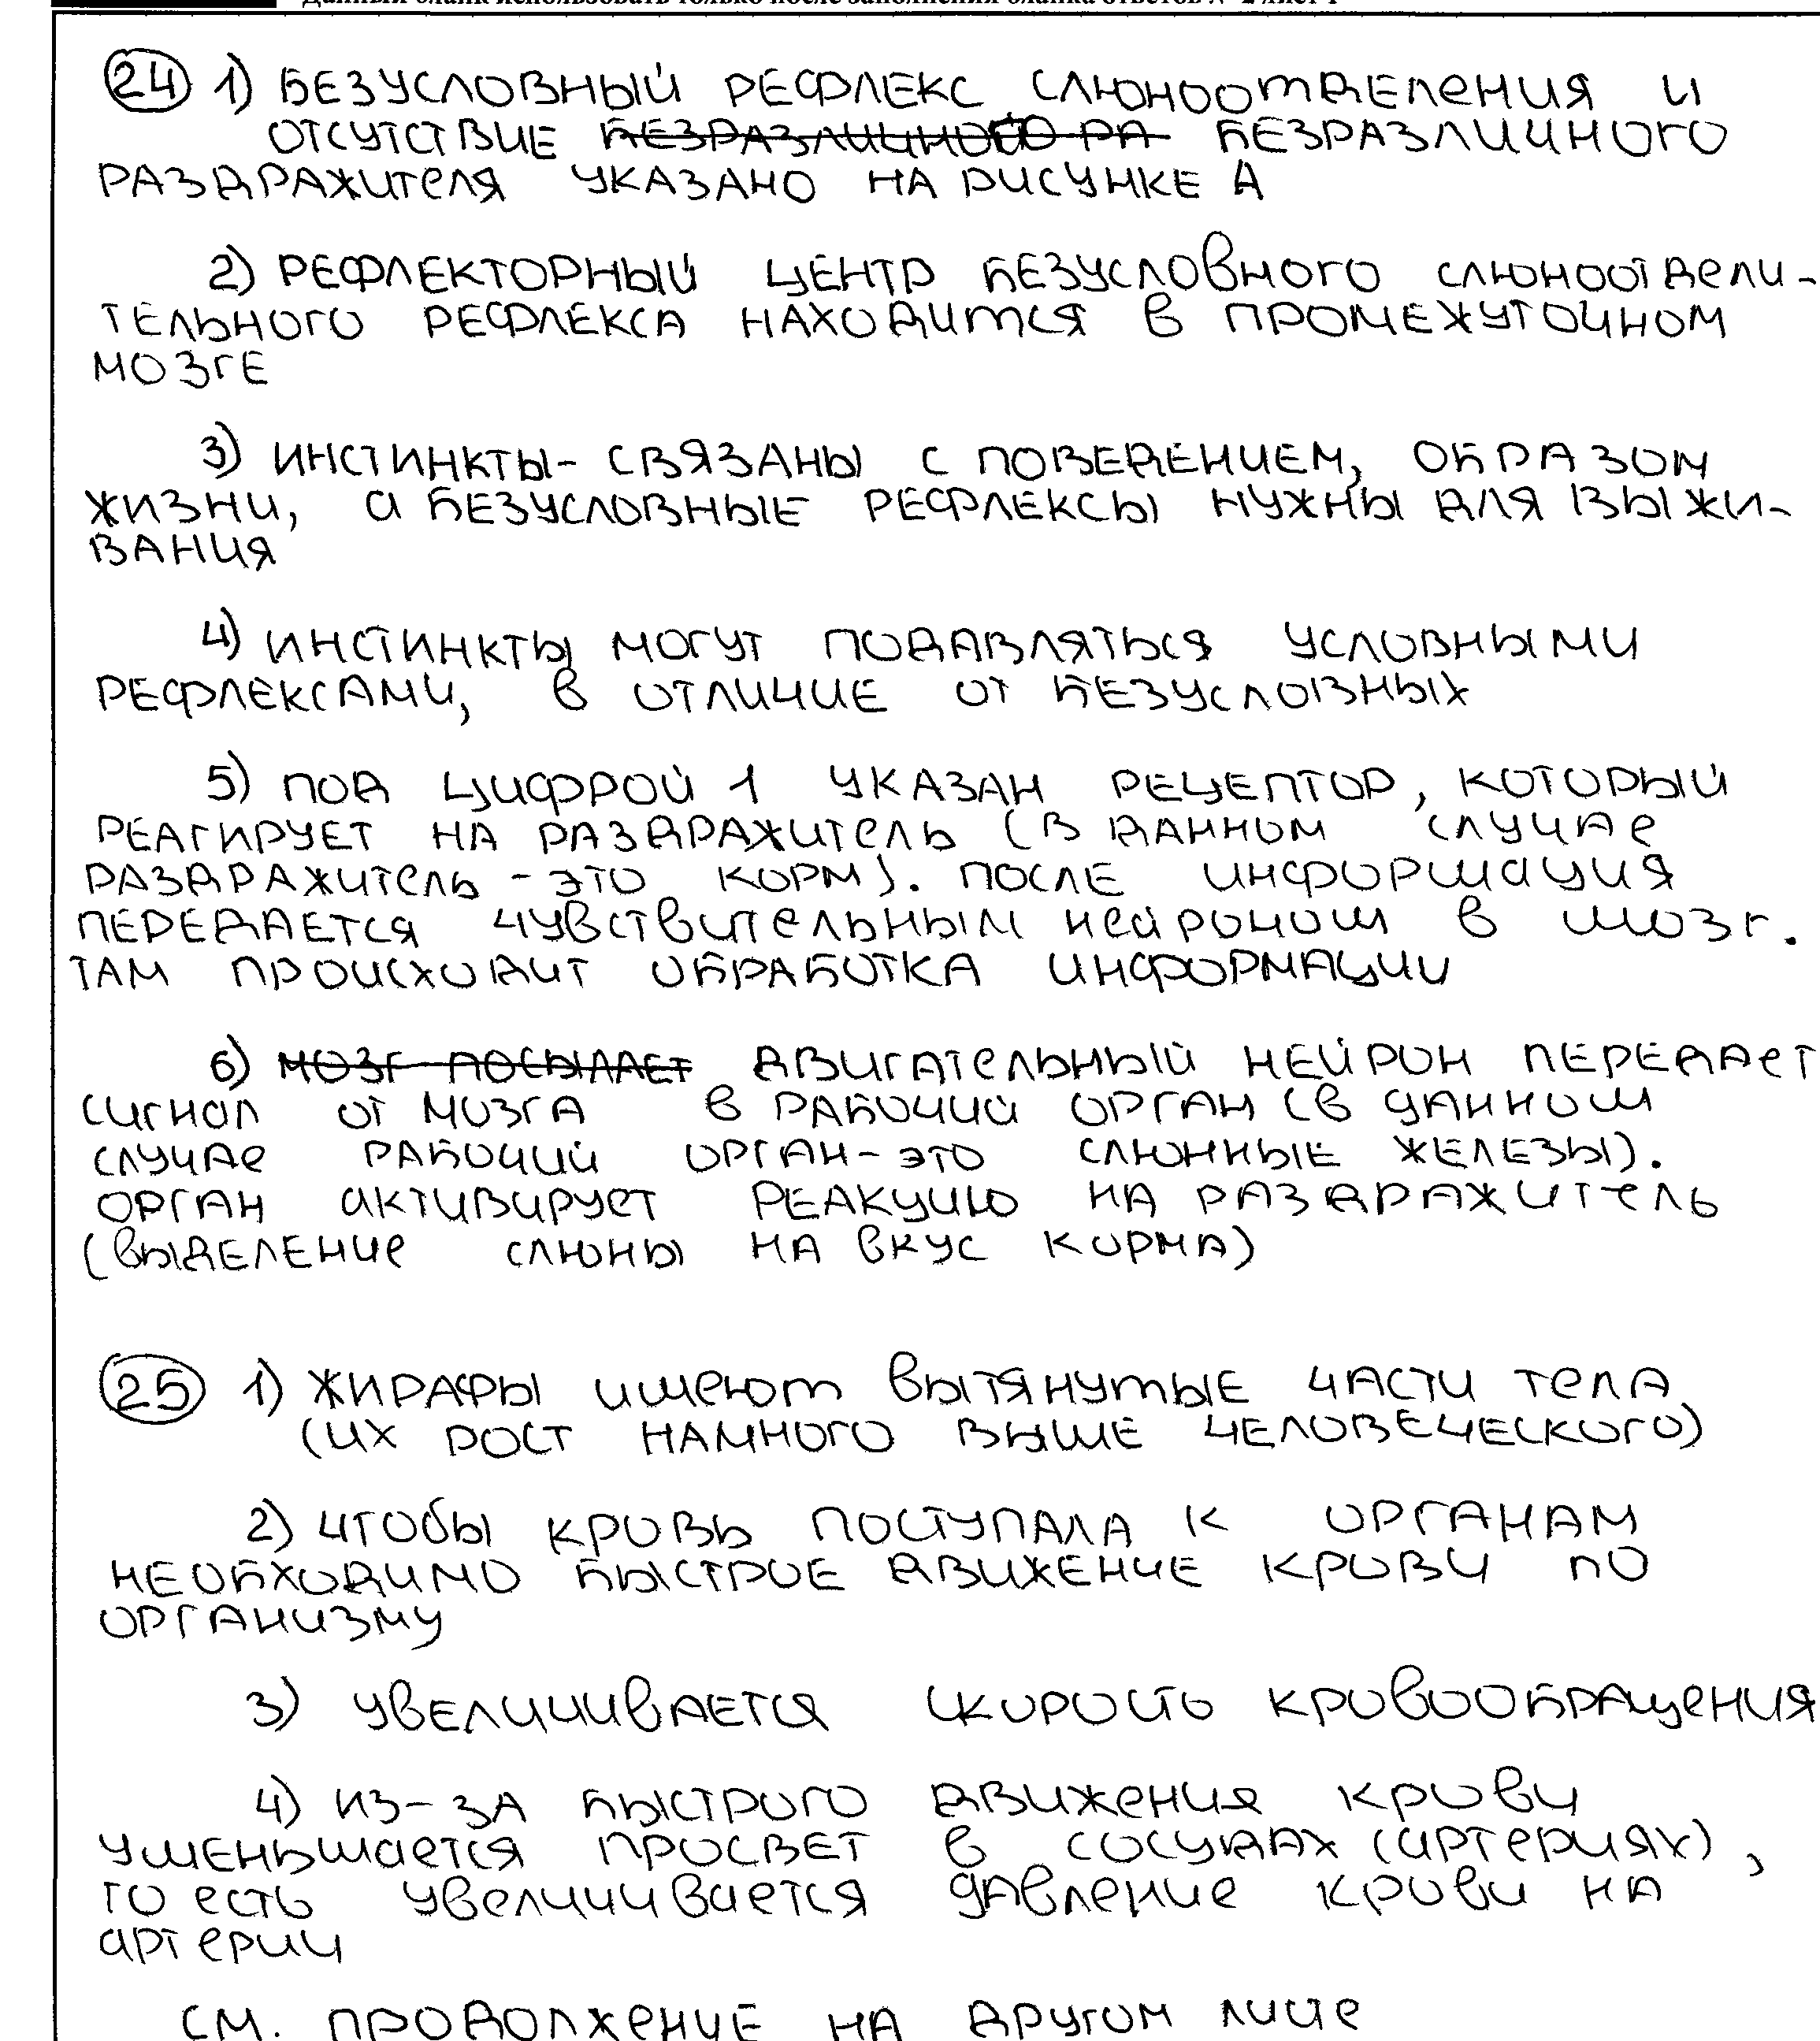 Данный бланк использовать только после заполнения бланка ответов № 2 лист 1
24 1) БЕЗУСЛОВНЫЙ РЕФЛЕКС СЛЮНООТДЕЛЕНИЯ И
ОТСУТСТВИЕ БЕЗРАЗЛИЧНОГО РА БЕЗРАЗЛИЧНОГО
РАЗДРАЖИТЕЛЯ УКАЗАНО НА РИСУНКЕ А
2) РЕФЛЕКТОРНЫЙ ЦЕНТР БЕЗУСЛОВНОГО СЛЮНООТДЕЛИ-
ТЕЛЬНОГО РЕФЛЕКСА НАХОДИТСЯ В ПРОМЕЖУТОЧНОМ
МОЗГЕ
3) ИНСТИНКТЫ- СВЯЗАНЫ С ПОВЕДЕНИЕМ, ОБРАЗОМ
ЖИЗНИ, А БЕЗУСЛОВНЫЕ РЕФЛЕКСЫ НУЖНЫ ДЛЯ ВЫЖИ-
ВАНИЯ
4) ИНСТИНКТЫ МОГУТ ПОДАВЛЯТЬСЯ УСЛОВНЫМИ
РЕФЛЕКСАМИ, В ОТЛИЧИЕ ОТ БЕЗУСЛОВНЫХ
5) ПОД ЦИФРОЙ 1 УКАЗАН РЕЦЕПТОР, КОТОРЫЙ
РЕАГИРУЕТ НА РАЗДРАЖИТЕЛЬ (В ДАННОМ СЛУЧАЕ
РАЗДРАЖИТЕЛЬ - ЭТО КОРМ). ПОСЛЕ ИНФОРМАЦИЯ
ПЕРЕДАЕТСЯ ЧУВСТВИТЕЛЬНЫМ НЕЙРОНОМ В МОЗГ.
ТАМ ПРОИСХОДИТ ОБРАБОТКА ИНФОРМАЦИИ
6) МОЗГ ПОСЫЛАЕТ ДВИГАТЕЛЬНЫЙ НЕЙРОН ПЕРЕДАЕТ
СИГНАЛ ОТ МОЗГА В РАБОЧИЙ ОРГАН (В ДАННОМ
СЛУЧАЕ РАБОЧИЙ ОРГАН-ЭТО СЛЮННЫЕ ЖЕЛЕЗЫ).
ОРГАН АКТИВИРУЕТ РЕАКЦИЮ НА РАЗДРАЖИТЕЛЬ
(ВЫДЕЛЕНИЕ СЛЮНЫ НА ВКУС КОРМА)
25 1) ЖИРАФЫ ИМЕЮТ ВЫТЯНУТЫЕ ЧАСТИ ТЕЛА
(ИХ РОСТ НАМНОГО ВЫШЕ ЧЕЛОВЕЧЕСКОГО)
2) ЧТОБЫ КРОВЬ ПОСТУПАЛА К ОРГАНАМ
НЕОБХОДИМО БЫСТРОЕ ДВИЖЕНИЕ КРОВИ ПО
ОРГАНИЗМУ
3) УВЕЛИЧИВАЕТСЯ СКОРОСТЬ КРОВООБРАЩЕНИЯ
4) ИЗ-ЗА БЫСТРОГО ДВИЖЕНИЯ КРОВИ
УМЕНЬШАЕТСЯ ПРОСВЕТ В СОСУДАХ (АРТЕРИЯХ),
ТО ЕСТЬ УВЕЛИЧИВАЕТСЯ ДАВЛЕНИЕ КРОВИ НА
АРТЕРИИ
СМ. ПРОДОЛЖЕНИЕ НА ДРУГОМ ЛИЦЕ